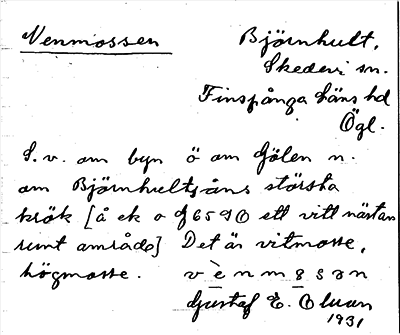 Venmossen
Björnhult,
Skedevi sn.
Finspånga läns hd
Ögl.
S. v. om byn ö om Gölen n.
om Björnhultsåns största
krök [å ek o g 6590 ett vitt nästan
runt område] Det är vitmosse,
högmosse. vènmosən
Gustaf E. Oluan
1931